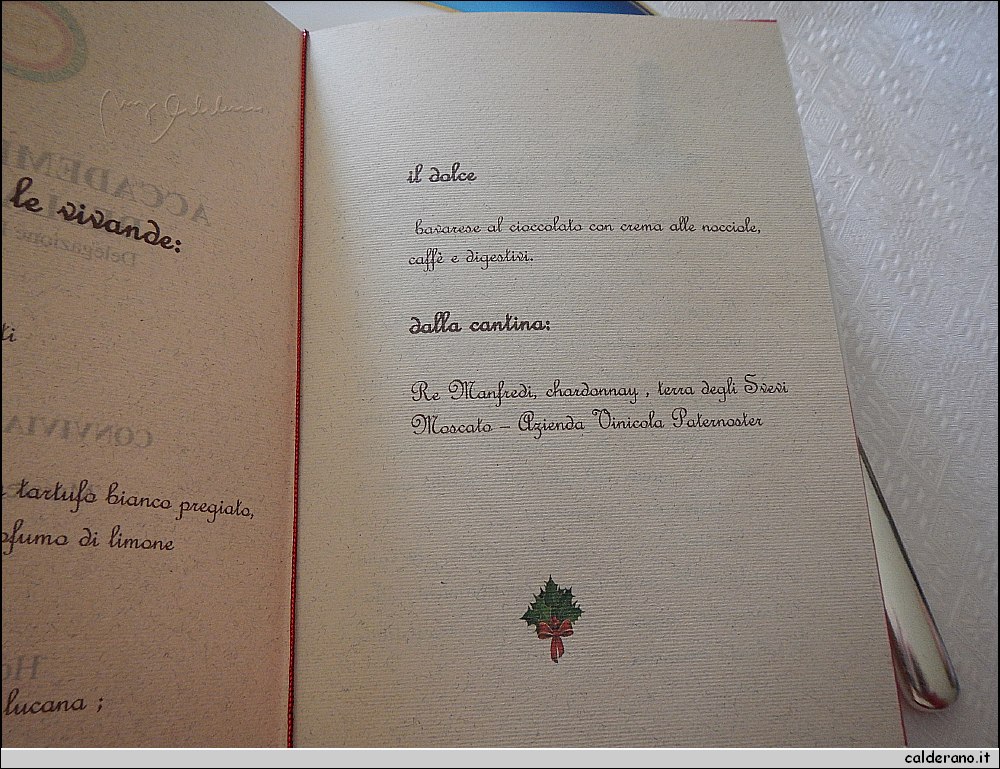 le vivande:
ti
tartufo bianco pregiato,
ofumo di limone
lucana ;
il dolce
bavarese al cioccolato con crema alle nocciole,
caffè e digestivi.
dalla cantina:
Re Manfredi, chardonnay , terra degli Svevi
Moscato – Azienda Vinicola Paternoster
calderano.it